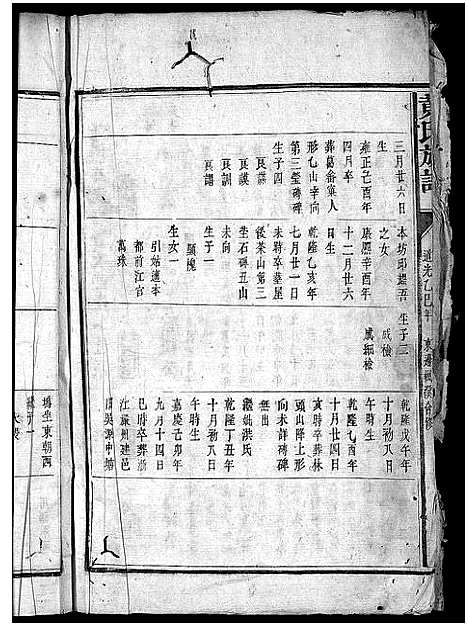 黃氏族譜
道光乙巳年
三月廿六日
生
雍正己酉年
四月卒
葬葛畲寮人
形乙山辛向
第三瑩磚碑
生子四
良謨
良謀
良訓
良謂
本坊邱堪吾
之女
康熙辛酉年
十二月廿六
日生
乾隆乙亥年
七月廿一日
未時卒墓屋
後茶山第三
坐石碑丑山
未向
生子一
顯槐
生女一
引姑適本
都前江官
萬珠
生子二
成檢
成細檢
乾隆戊午年
十月初八日
午時生
乾隆乙酉年
十月廿四日
亥時卒葬林
頭山降上形
向未詳磚碑
無出
繼妣洪氏
乾隆丁丑年
十月初八日
午時生
嘉慶己卯年
九月十四日
巳時卒葬浙
江蘇州建邑
塢坐東朝西